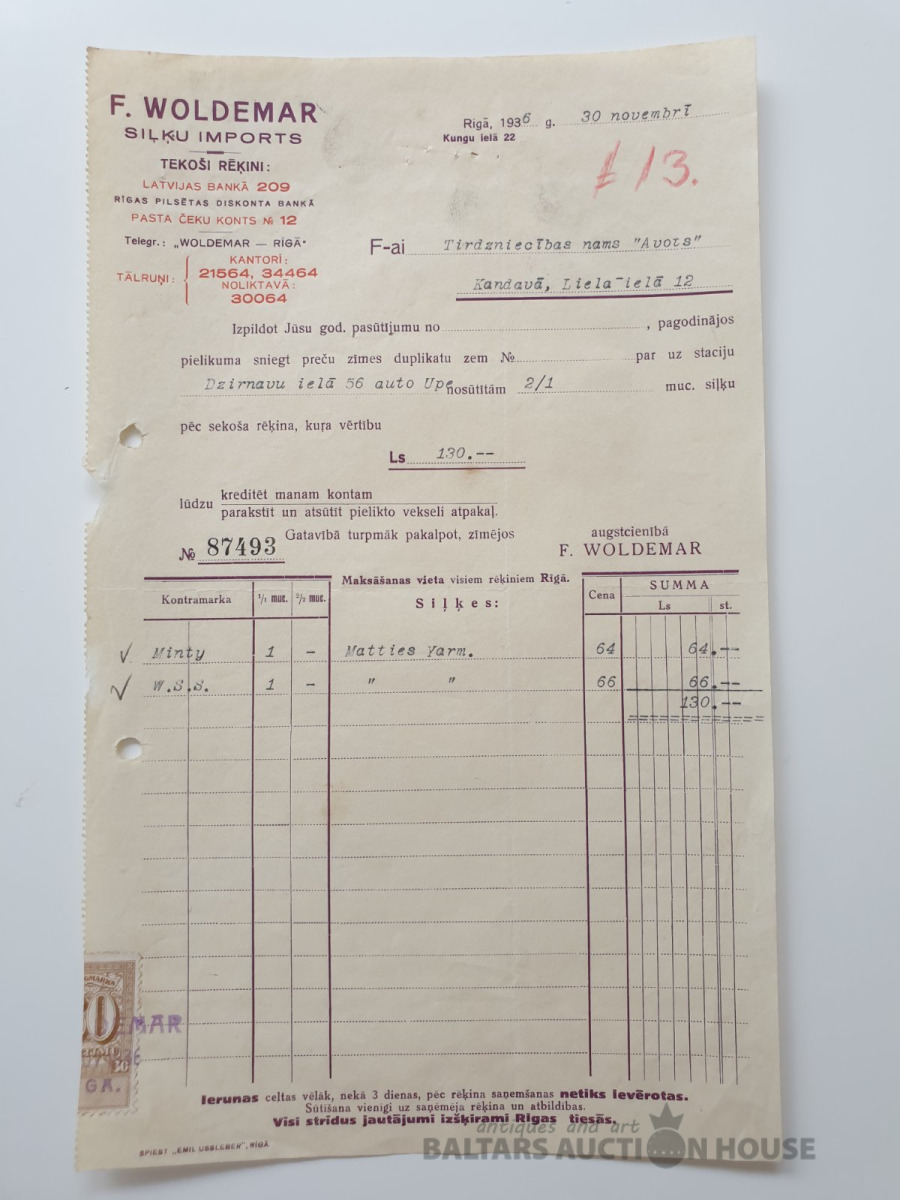 F. WOLDEMAR
SIĻĶU IMPORTS
TEKOŠI RĒĶINI:
LATVIJAS BANKĀ 209
RĪGAS PILSĒTAS DISKONTA BANKĀ
PASTA ČEKU KONTS № 12
Telegr.: „WOLDEMAR — RĪGĀ"
TĀLRUŅI:
KANTORĪ:
21564, 34464
NOLIKTAVĀ:
30064
Rīgā, 1936 g. 30 novembrī
Kungu ielā 22
13.
F-ai Tirdzniecības nams "Avots"
Kandavā, Liela ielā 12
Izpildot Jūsu god. pasūtījumu no , pagodinājos
pielikuma sniegt preču zīmes duplikatu zem № par uz staciju
Dzirnavu ielā 56 auto Upe nosūtītām 2/1 muc. siļķu
pēc sekoša rēķina, kuŗa vērtību
Ls 130.--
lūdzu kreditēt manam kontam
parakstīt un atsūtīt pielikto vekseli atpakaļ.
Gatavībā turpmāk pakalpot, zīmējos augstcienībā
№ 87493 F. WOLDEMAR
Maksāšanas vieta visiem rēķiniem Rīgā.
Kontramarka 1/1 muc. 2/2 muc. Siļķes: Cena SUMMA
Ls st.
Minty 1 - Matties Yarm. 64 64.--
W.S.S. 1 - " " 66 66.--
130.--
MAR
GA.
Ierunas celtas vēlāk, nekā 3 dienas, pēc rēķina saņemšanas netiks ievērotas.
Sūtīšana vienīgi uz saņēmēja rēķina un atbildības.
Visi strīdus jautājumi izšķirami Rīgas tiesās.
SPIEST „EMIL USSLEBER", RĪGĀ
antiques and art
BALTARS AUCTION HOUSE